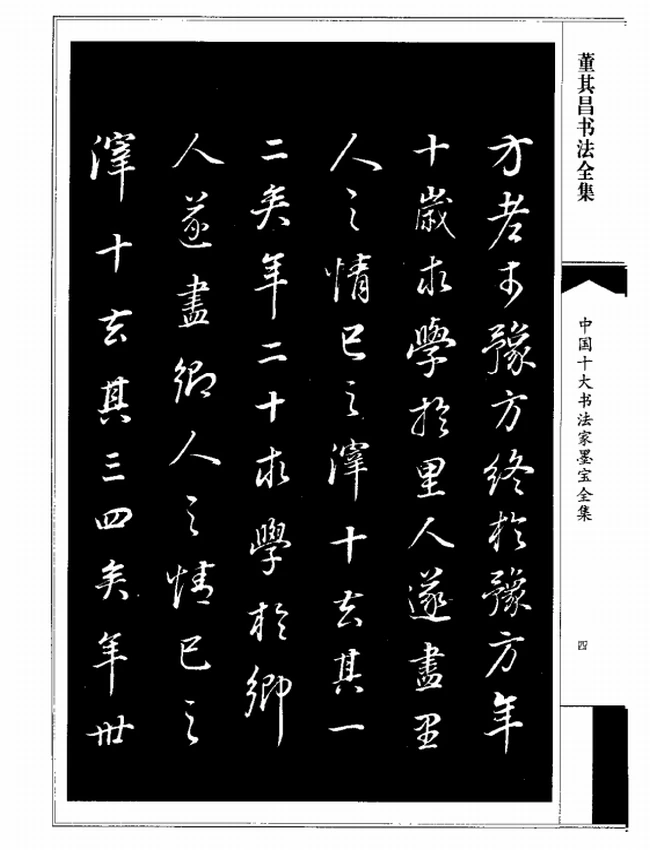 董其昌书法全集
中国十大书法家墨宝全集
四
方老於豫方終於豫方年
十歲求學於里人遂盡里
人之情已之滓十去其一
二矣年二十求學於鄉
人遂盡鄉人之情已之
滓十去其三四矣年卅